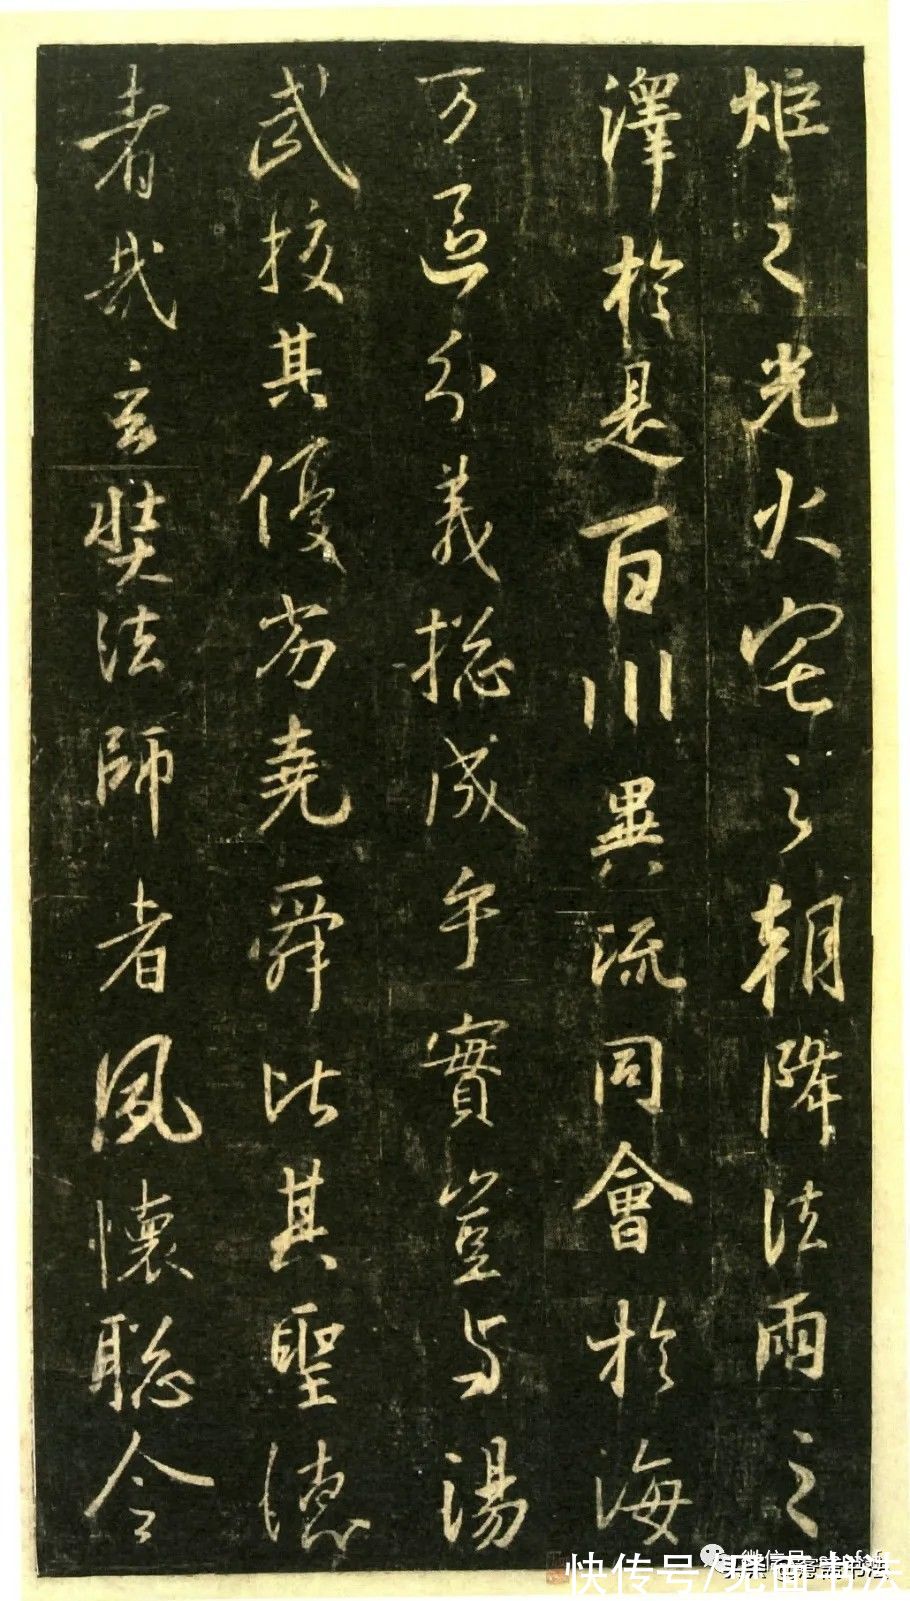 炬之光火宅之朝降法雨之
澤於是百川異流同會於海
万區分義摠成乎實豈与湯
武挍其優劣堯舜比其聖德
者哉玄奘法師者夙懷聡令
快传号/见面书法